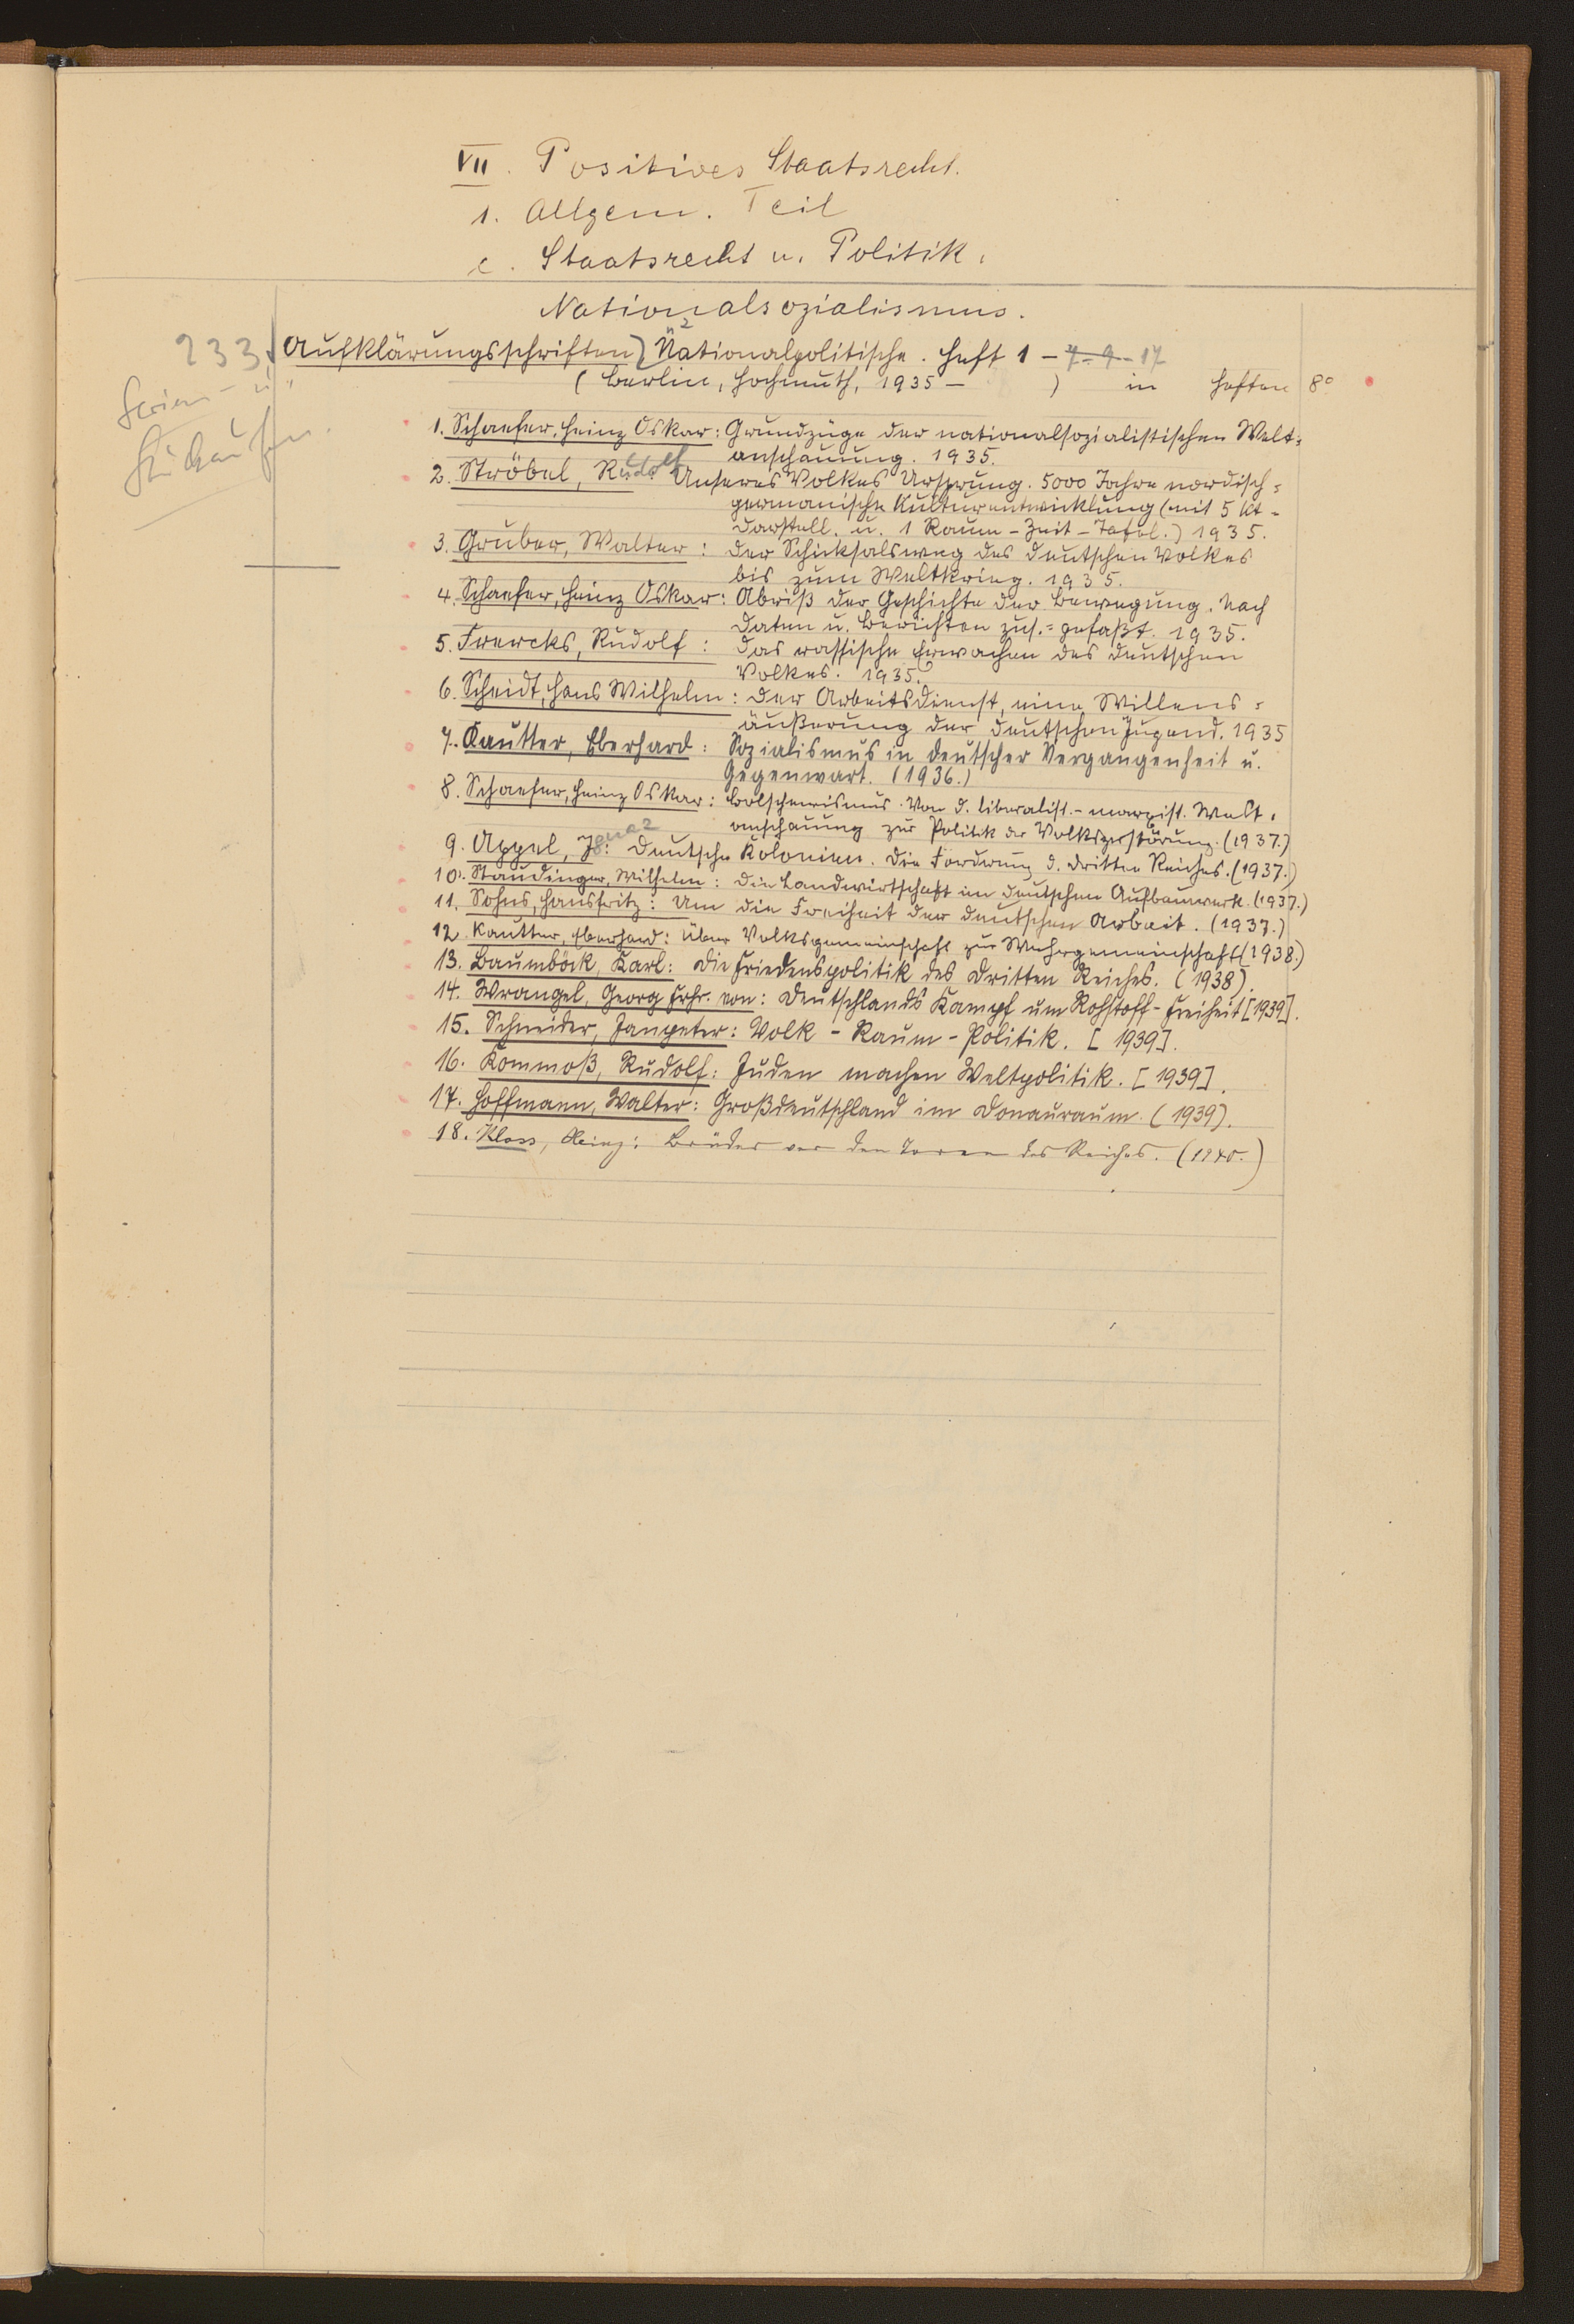 VII. Positives Staatsrecht.
1. Allgem. Teil
c. Staatsrecht u. Politik.
Nationalsozialismus.
233. Aufklärungsschriften, Nationalpolitische. Heft 1 - 7 - 9 - 17
(Berlin, Hochmuth, 1935 — ) in Heften 8°
Serien- u.
1. Schaefer, Heinz Oskar: Grundzüge der nationalsozialistischen Welt=
anschauung. 1935.
2. Ströbel, Rudolf: Unseres Volkes Ursprung. 5000 Jahre nordisch=
germanische Kulturentwicklung (mit 5 Kt-
Darstell. u. 1 Raum-Zeit-Tafel.) 1935.
3. Gruber, Walter: Der Schicksalsweg des deutschen Volkes
bis zum Weltkrieg. 1935.
4. Schaefer, Heinz Oskar: Abriß der Geschichte der Bewegung. Nach
Daten u. Berichten zus.=gefaßt. 1935.
5. Frercks, Rudolf: Das rassische Erwachen des deutschen
Volkes. 1935.
6. Scheidt, Hans Wilhelm: Der Arbeitsdienst, eine Willens=
äußerung der deutschen Jugend. 1935
7. Kautter, Eberhard: Sozialismus in deutscher Vergangenheit u.
Gegenwart. (1936.)
8. Schaefer, Heinz Oskar: Bolschewismus. Von d. liberalist.-marxist. Welt=
anschauung zur Politik der Volkszerstörung. (1937.)
9. Appel, Ignaz: Deutsche Kolonien. Die Forderung d. dritten Reiches. (1937.)
10. Staudinger, Wilhelm: Die Landwirtschaft im deutschen Aufbauwerk. (1937.)
11. Sohns, Hansfritz: Um die Freiheit der deutschen Arbeit. (1937.)
12. Kautter, Eberhard: Über Volksgemeinschaft zur Wehrgemeinschaft (1938.)
13. Baumböck, Karl: Die Friedenspolitik des Dritten Reiches. (1938).
14. Wrangel, Georg Frhr. von: Deutschlands Kampf um Rohstoff-Freiheit [1939].
15. Schneider, Janpeter: Volk - Raum - Politik. [1939].
16. Kommoß, Rudolf: Juden machen Weltpolitik. [1939].
17. Hoffmann, Walter: Großdeutschland im Donauraum. (1939).
18. Kloss, Heinz: Brüder vor den Toren des Reiches. (1940.)